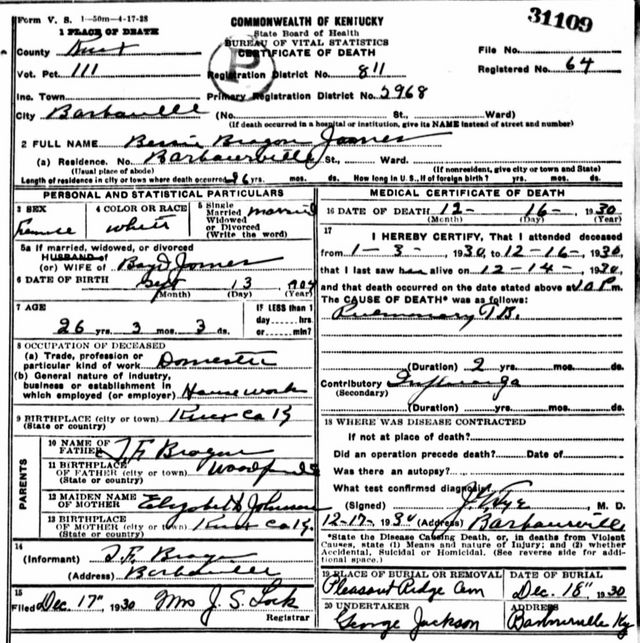 Form V. S. 1-50m-4-17-28
31109
COMMONWEALTH OF KENTUCKY
State Board of Health
BUREAU OF VITAL STATISTICS
CERTIFICATE OF DEATH
1 PLACE OF DEATH
County Knox
Vot. Pct. 111
Inc. Town
City Barbourville (No. St., Ward)
(If death occurred in a hospital or institution, give its NAME instead of street and number)
File No.
Registered No. 64
Registration District No. 811
Primary Registration District No. 5968
2 FULL NAME Jones
(a) Residence. No. Barbourville St., Ward.
(Usual place of abode) (If nonresident, give city or town and State)
Length of residence in city or town where death occurred 26 yrs. mos. ds. How long in U. S., if of foreign birth? yrs. mos. ds.
PERSONAL AND STATISTICAL PARTICULARS
3 SEX Female
4 COLOR OR RACE White
5 Single Married Widowed or Divorced (Write the word) Married
5a If married, widowed, or divorced
HUSBAND of
(or) WIFE of Boyd Jones
6 DATE OF BIRTH Sept 13 1904
(Month) (Day) (Year)
7 AGE
26 yrs. 3 mos. 3 ds.
IF LESS than 1 day----hrs. or----min.?
8 OCCUPATION OF DECEASED
(a) Trade, profession or particular kind of work Domestic
(b) General nature of industry, business or establishment in which employed (or employer) House work
9 BIRTHPLACE (city or town) Knox Co Ky
(State or country)
PARENTS
10 NAME OF FATHER
11 BIRTHPLACE OF FATHER (city or town)
(State or country)
12 MAIDEN NAME OF MOTHER Elizabeth Johnson
13 BIRTHPLACE OF MOTHER (city or town) Knox Co Ky.
(State or country)
14
(Informant)
(Address) Barbourville
15
Filed Dec. 17" 1930 Mrs J. S. Lock
Registrar
MEDICAL CERTIFICATE OF DEATH
16 DATE OF DEATH 12- 16- 1930
(Month) (Day) (Year)
17
I HEREBY CERTIFY, That I attended deceased
from 1-3- 1930, to 12-16-, 1930,
that I last saw her alive on 12-14-, 1930,
and that death occurred on the date stated above at P m.
The CAUSE OF DEATH* was as follows:
Pulmonary T.B.
(Duration) 2 yrs. mos. ds.
Contributory Influenza
(Secondary)
(Duration) yrs. mos. ds.
18 WHERE WAS DISEASE CONTRACTED
If not at place of death?
Did an operation precede death? Date of
Was there an autopsy?
What test confirmed diagnosis?
(Signed) M. D.
12-17- 1930 (Address) Barbourville
*State the Disease Causing Death, or, in deaths from Violent
Causes, state (1) Means and nature of Injury; and (2) whether
Accidental, Suicidal or Homicidal. (See reverse side for addi-
tional space.)
19 PLACE OF BURIAL OR REMOVAL
Pleasant Ridge Cem
DATE OF BURIAL
Dec. 18" 1930
20 UNDERTAKER
George Jackson
ADDRESS
Barbourville Ky